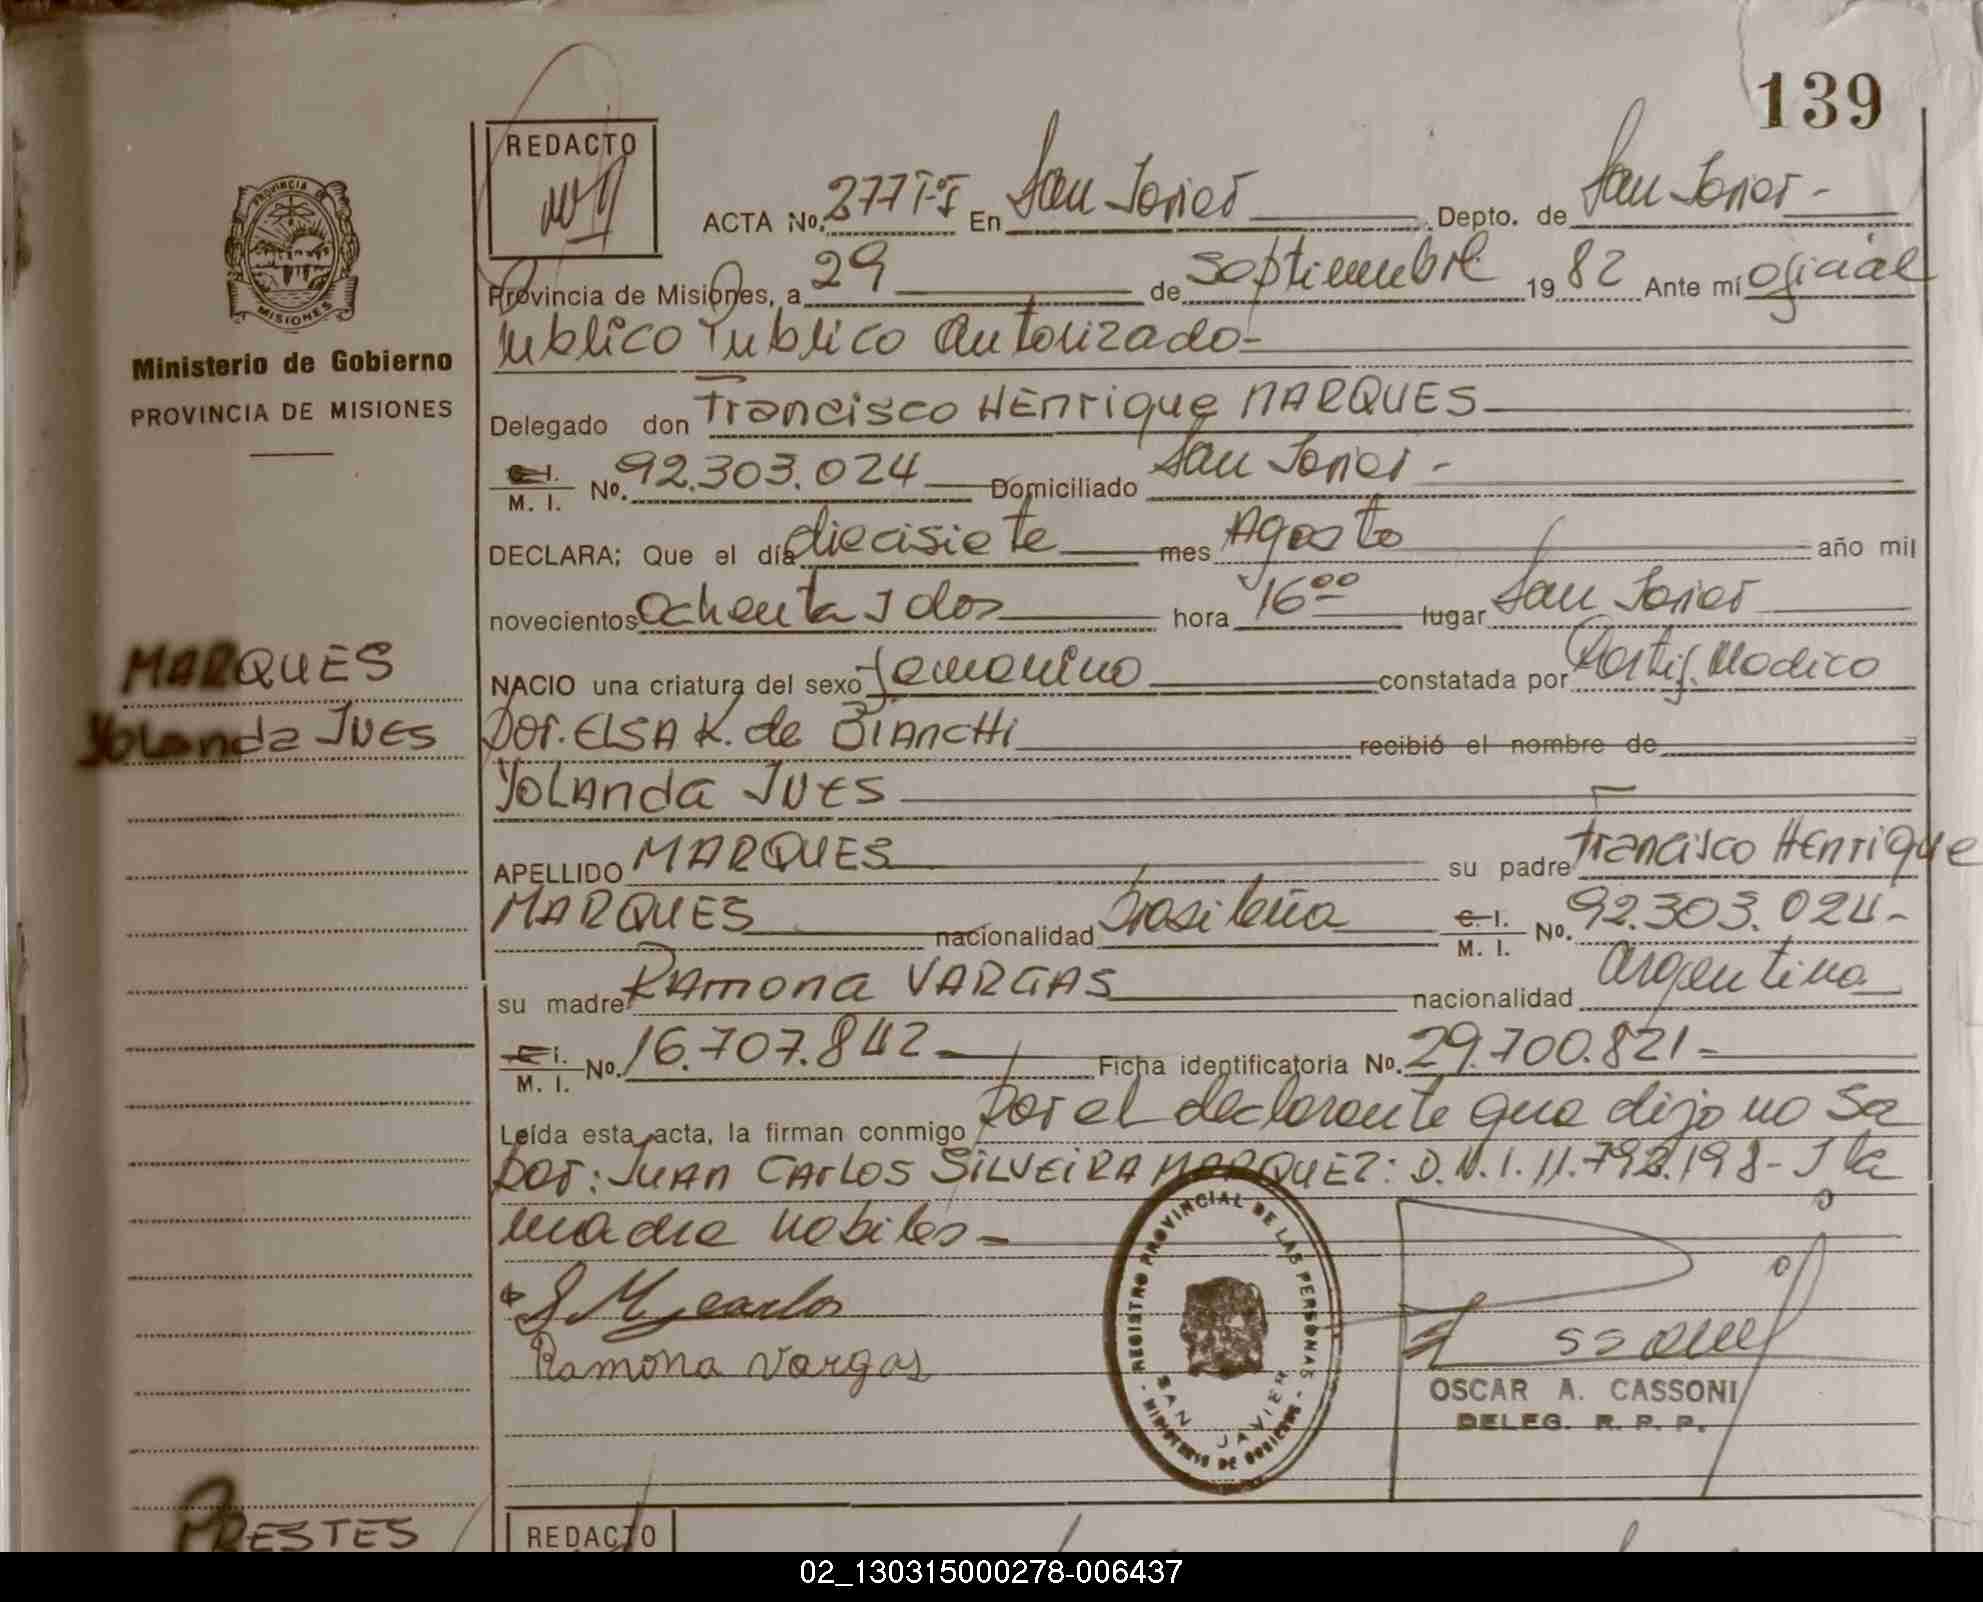 139
REDACTO
PROVINCIA DE
MISIONES
Ministerio de Gobierno
PROVINCIA DE MISIONES
ACTA No. 277 T-I En San Javier Depto. de San Javier -
Provincia de Misiones, a 29 de Septiembre 1982 Ante mí oficial
Publico Publico Autorizado-
Delegado don Francisco HEnrique MARQUES
C. I. M. I. No. 92.303.024 Domiciliado San Javier -
DECLARA; Que el día diecisiete mes Agosto año mil
novecientos ochenta y dos hora 16 00 lugar San Javier
NACIO una criatura del sexo femenino constatada por Certif. Medico
Dor. ELSA K. de BIANCHI recibió el nombre de
YOLAnda INES
APELLIDO MARQUES su padre Francisco HEnrique
MARQUES nacionalidad brasileña C. I. M. I. No. 92.303.024-
su madre RAmona VARGAS nacionalidad argentina
C. I. M. I. No. 16.707.842 Ficha identificatoria No. 29.700.821-
Leída esta acta, la firman conmigo Por el declarante que dijo no Sa
por: JUAN CARLOS SILVEIRA MARQUEZ: D.N.I. 11.792.198- y la
madre
MARQUES
Yolanda INES
carlos
Ramona Vargas
REGISTRO PROVINCIAL DE LAS PERSONAS
SAN JAVIER
MINISTERIO DE GOBIERNO
OSCAR A. CASSONI
DELEG. R. P. P.
PRESTES
REDACTO
02_130315000278-006437